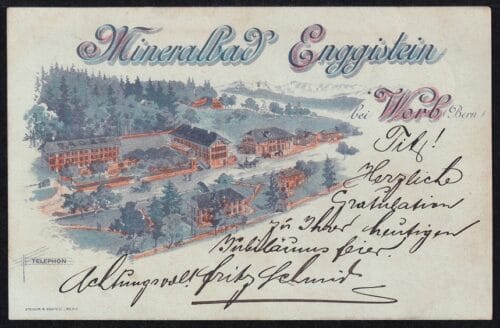 Mineralbad Enggistein
bei Worb (Bern)
Tit!
Herzliche
Gratulation
zu Ihrer heutigen
Jubiläums feier.
Achtungsvollst Fritz Schmid
TELEPHON